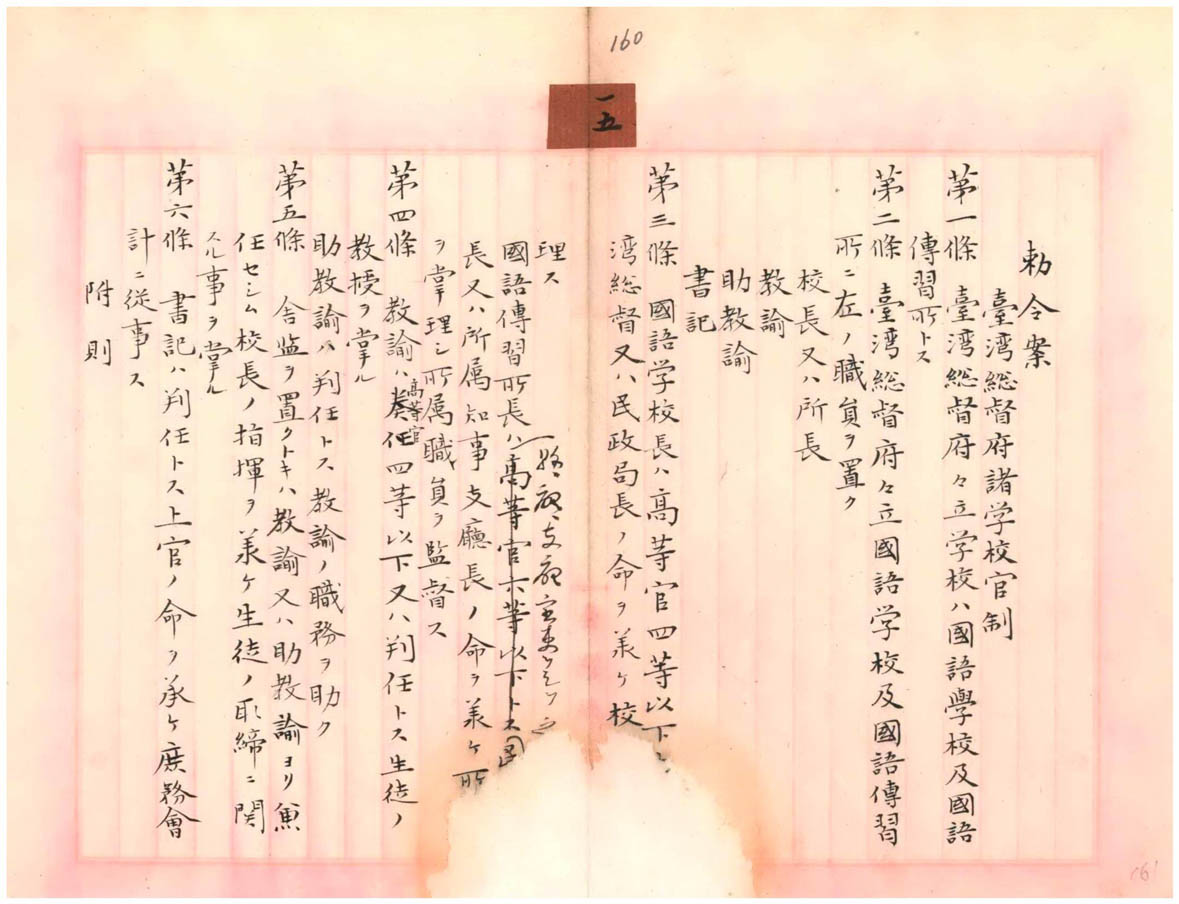 160
一五
勅令案
臺湾総督府諸学校官制
第一條 臺湾総督府々立学校ハ國語學校及國語
傳習所トス
第二條 臺湾総督府々立國語学校及國語傳習
所ニ左ノ職員ヲ置ク
校長又ハ所長
教諭
助教諭
書記
第三條 國語学校長ハ高等官四等以下
湾総督又ハ民政局長ノ命ヲ羕ケ校
理ス
縣廳支廳
國語傳習所長ハ高等官六等以下トス
長又ハ所属知事支廳長ノ命ヲ羕ケ所
ヲ掌理シ所属職員ヲ監督ス
高等官
第四條 教諭ハ奏任四等以下又ハ判任トス生徒ノ
教授ヲ掌ル
助教諭ハ判任トス教諭ノ職務ヲ助ク
第五條 舎監ヲ置クトキハ教諭又ハ助教諭ヨリ兼
任セシム校長ノ指揮ヲ羕ケ生徒ノ取締ニ関
スル事ヲ掌ル
第六條 書記ハ判任トス上官ノ命ヲ承ケ庶務會
計ニ従事ス
附則
161